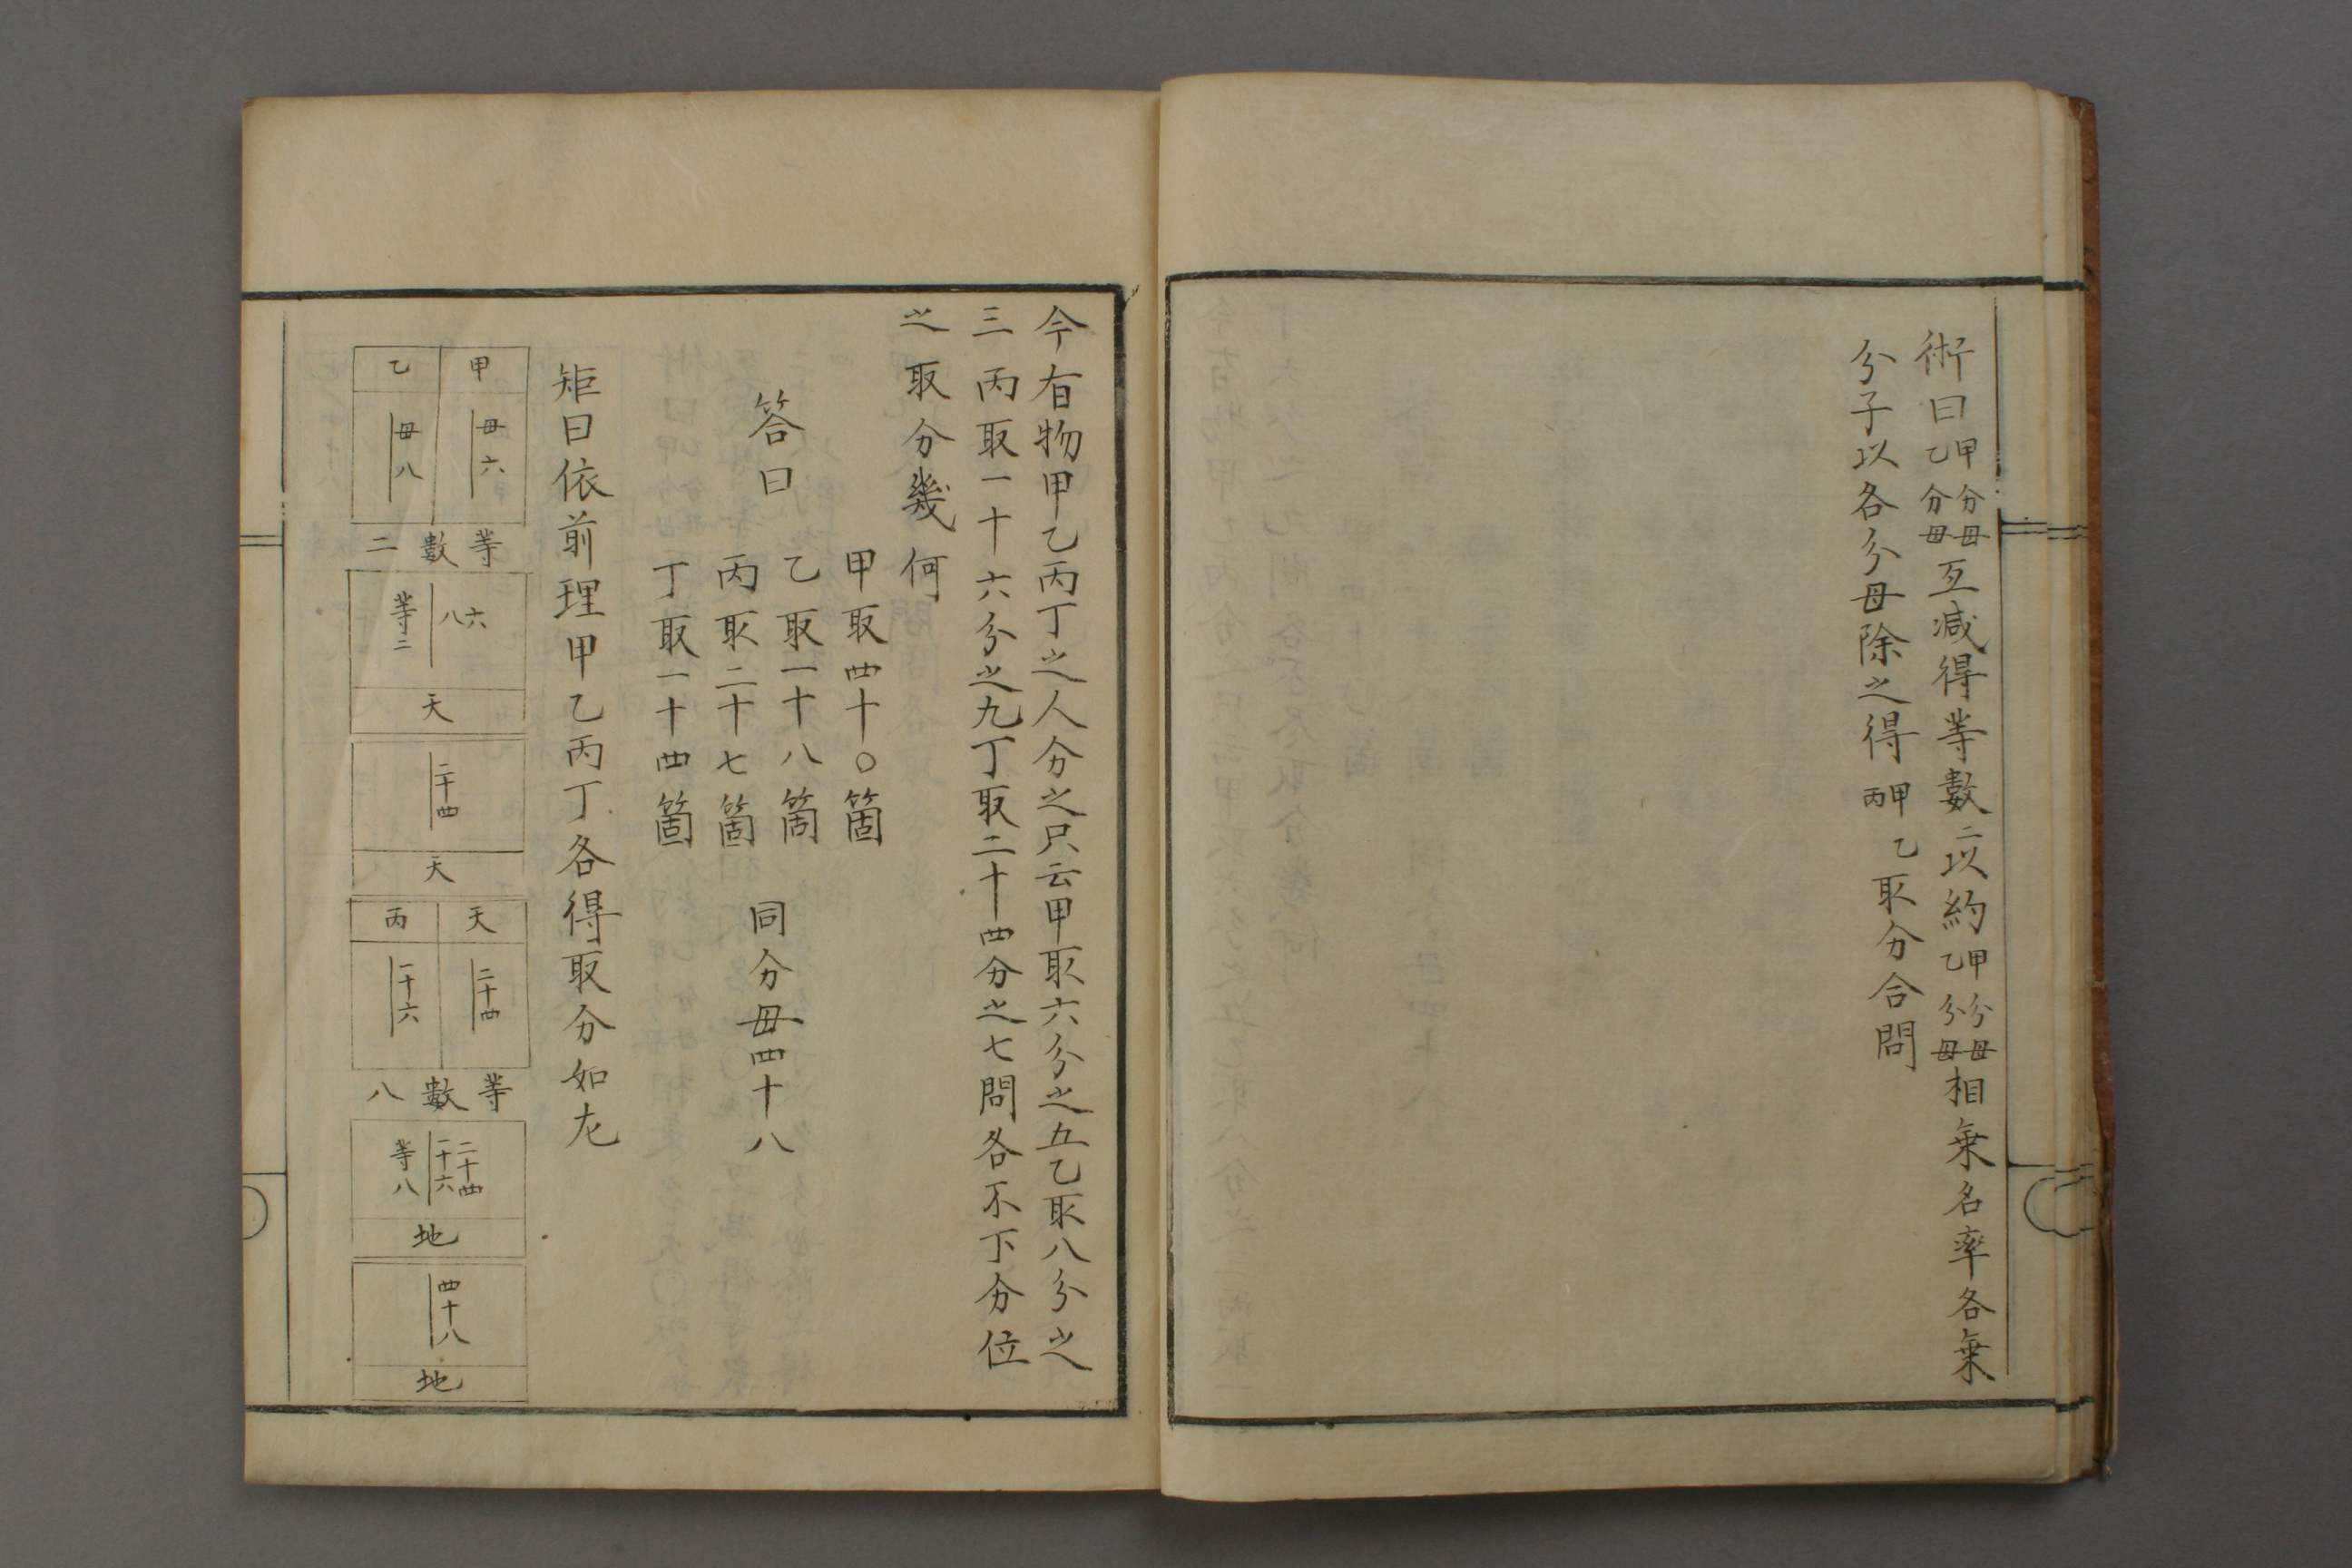 術曰甲乙分母分母互減得等數二以約甲乙分母分母相乗名率各乗
分子以各分母除之得甲丙乙取分合問
今有物甲乙丙丁之人分之只云甲取六分之五乙取八分之
三丙取一十六分之九丁取二十四分之七問各不下分位
之取分幾何
甲取四十〇箇
乙取一十八箇
答曰
丙取二十七箇
丁取一十四箇
同分母四十八
矩曰依前理甲乙丙丁各得取分如左
甲 乙
母六 母八
等數二
六八 等二
天
二十四
天
天 丙
二十四 一十六
等數八
二十四 一十六 等八
地
四十八
地